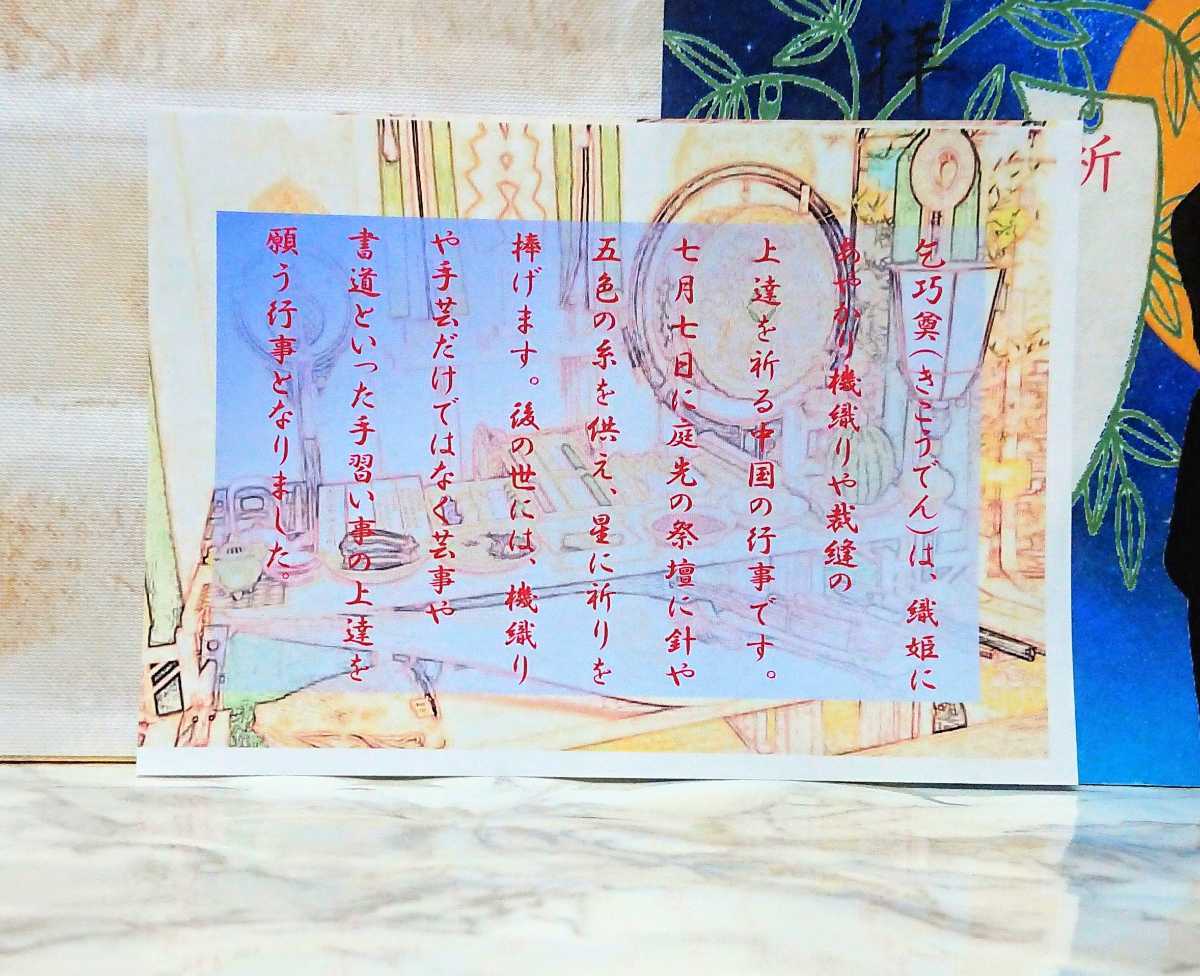 乞巧奠(きこうでん)は、織姫に
あやかり機織りや裁縫の
上達を祈る中国の行事です。
七月七日に庭先の祭壇に針や
五色の糸を供え、星に祈りを
捧げます。後の世には、機織り
や手芸だけではなく芸事や
書道といった手習い事の上達を
願う行事となりました。
拝
祈